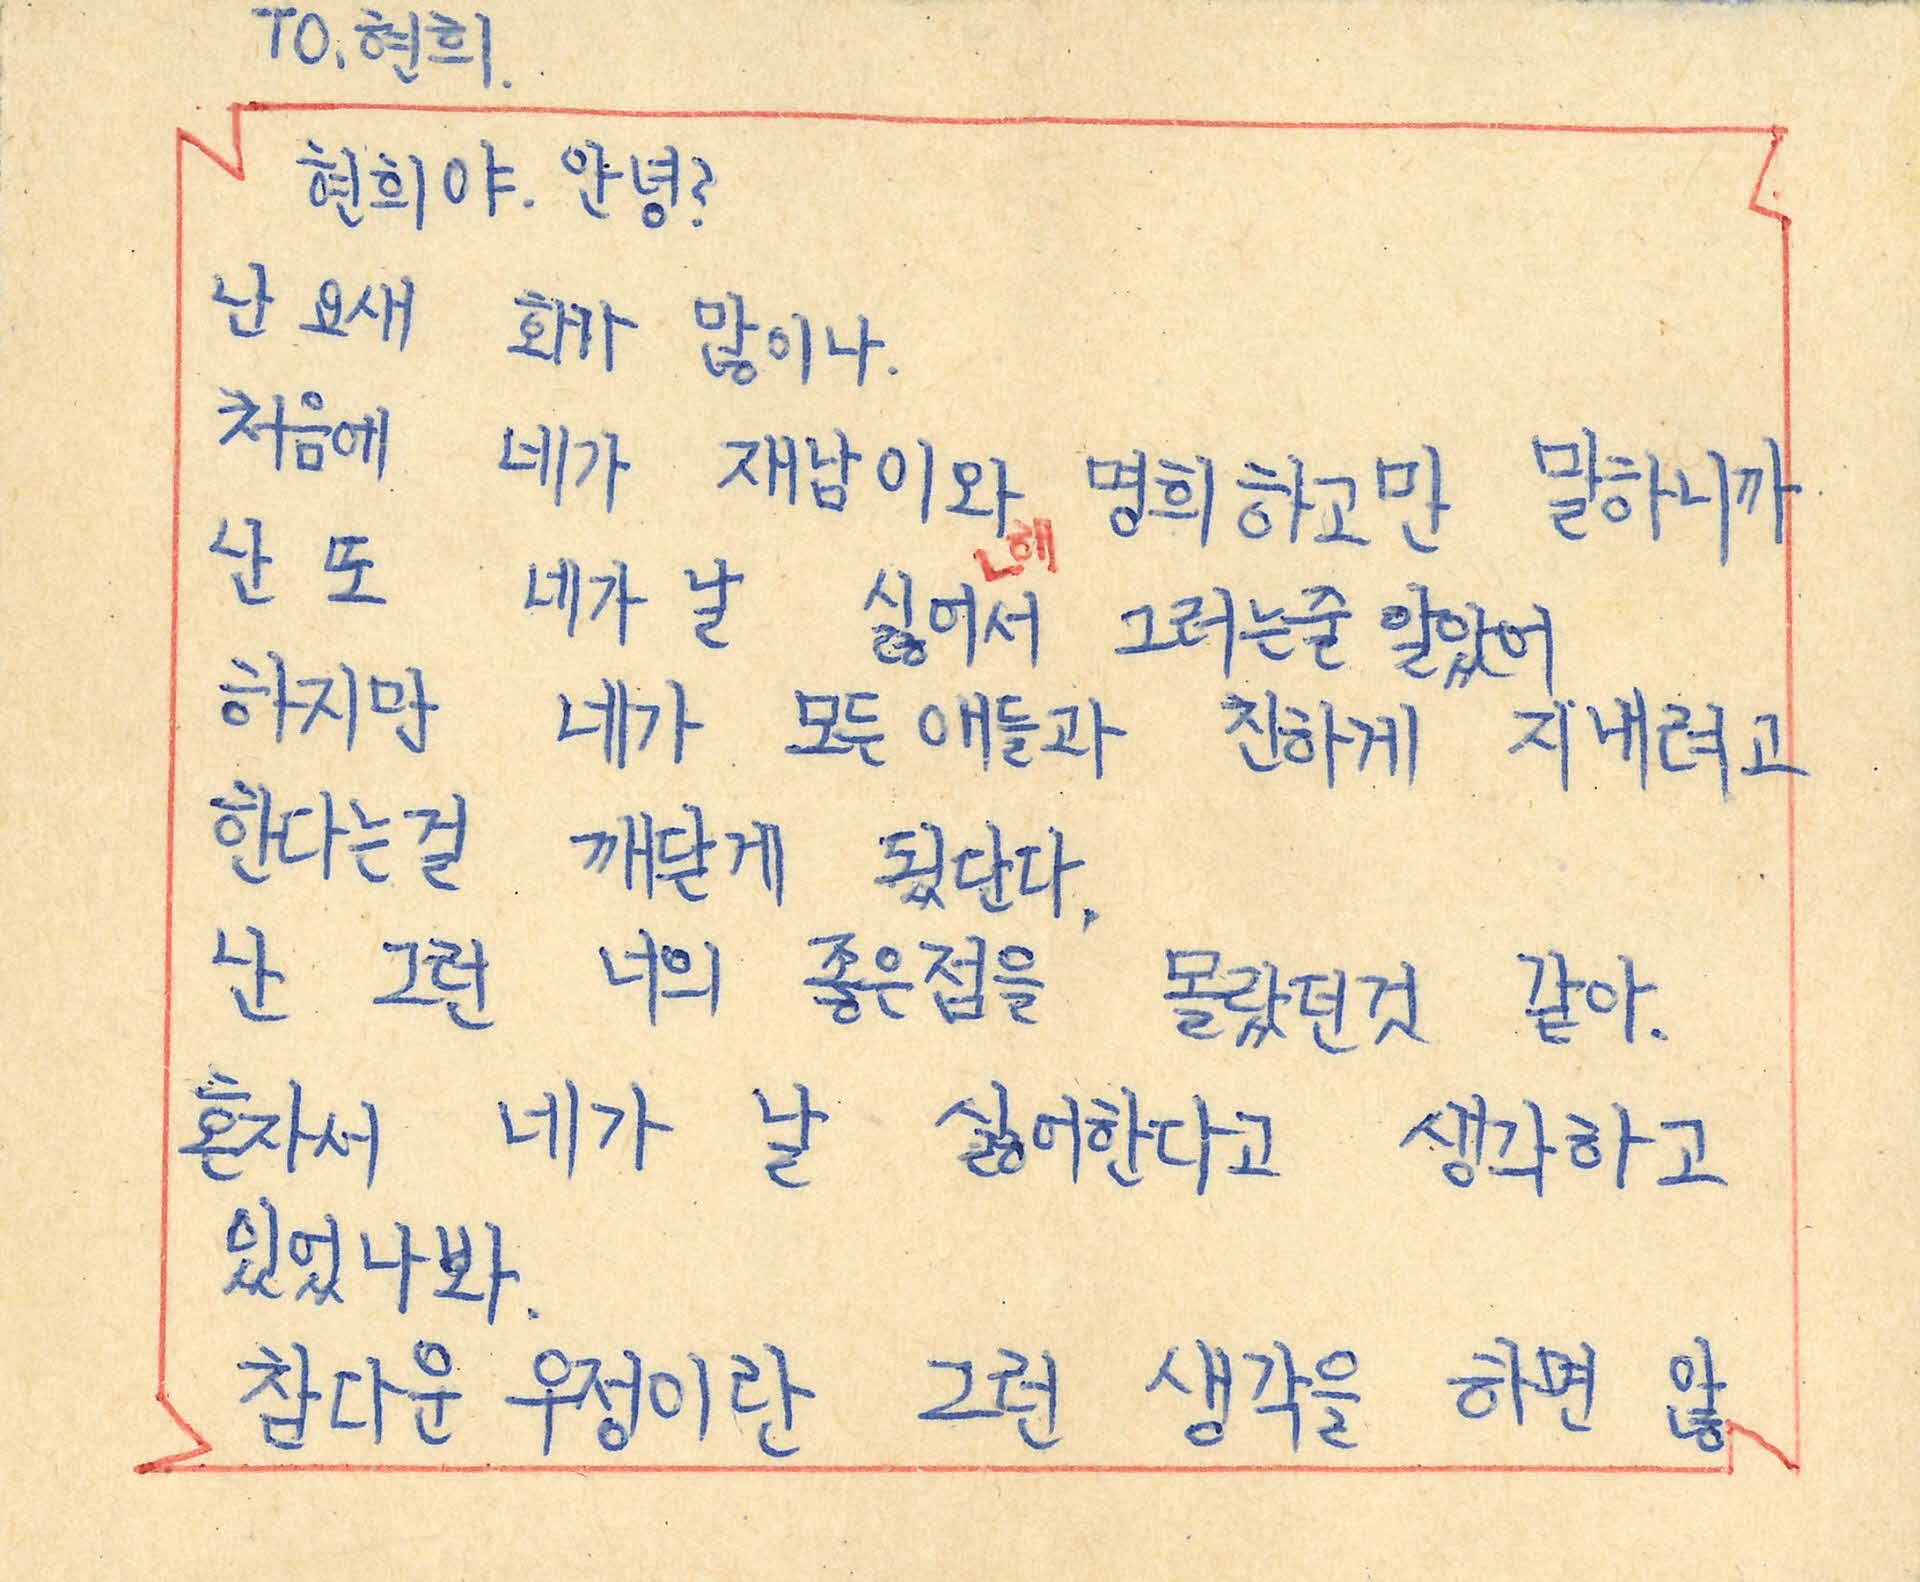 TO. 현희.
현희야. 안녕?
난 요새 화가 많이나.
처음에 네가 재남이와 명희하고만 말하니까
난 또 네가 날 싫어해서 그러는줄 알았어
하지만 네가 모든 애들과 친하게 지내려고
한다는걸 깨닫게 됬단다.
난 그런 너의 좋은점을 몰랐던것 같아.
혼자서 네가 날 싫어한다고 생각하고
있었나봐.
참다운 우정이란 그런 생각을 하면 않